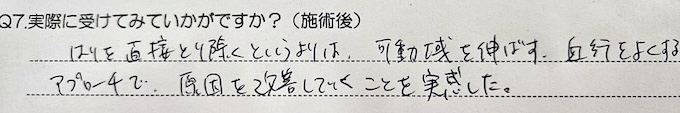 Q7.実際に受けてみていかがですか？（施術後）
はりを直接とり除くというよりは、可動域を伸ばす、血行をよくする
アプローチで、原因を改善していくことを実感した。